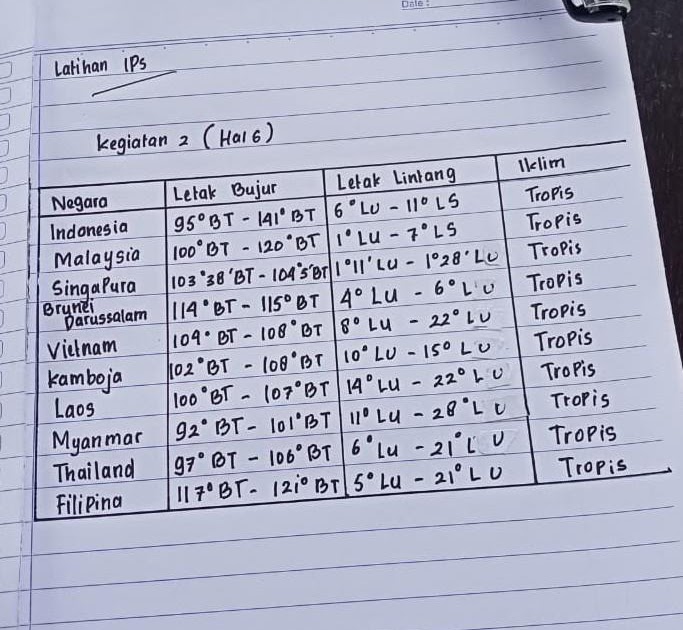 Date :
Latihan IPs
kegiatan 2 (Hal 6)
Negara Letak Bujur Letak Lintang Iklim
Indonesia 95° BT - 141° BT 6° LU - 11° LS Tropis
Malaysia 100° BT - 120° BT 1° LU - 7° LS Tropis
Singapura 103°38' BT - 104°5' BT 1°11' LU - 1°28' LU Tropis
Brunei Darussalam 114° BT - 115° BT 4° LU - 6° LU Tropis
Vietnam 104° BT - 108° BT 8° LU - 22° LU Tropis
kamboja 102° BT - 108° BT 10° LU - 15° LU Tropis
Laos 100° BT - 107° BT 14° LU - 22° LU Tropis
Myanmar 92° BT - 101° BT 11° LU - 28° LU Tropis
Thailand 97° BT - 106° BT 6° LU - 21° LU Tropis
Filipina 117° BT - 121° BT 5° LU - 21° LU Tropis